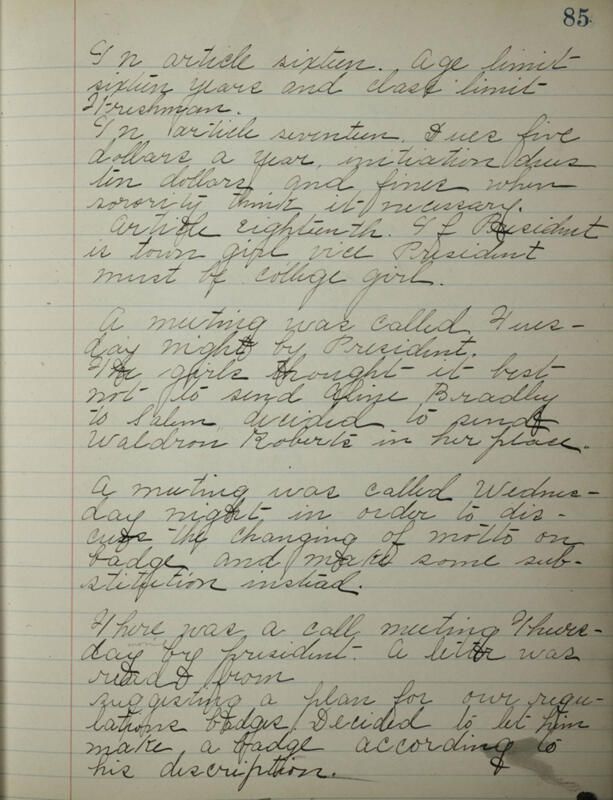 85
In article sixteen. Age limit
sixteen years and class limit
Freshman.
In article seventeen. Dues five
dollars a year, initiation dues
ten dollars and fines when
sorority think it necessary.
Article eighteenth. If President
is town girl vice President
must be college girl.
A meeting was called Tues-
day night by President.
The girls thought it best
not to send Aline Bradley
to Salem, decided to send
Waldron Roberts in her place.
A meeting was called Wednes-
day night in order to dis-
cuss the changing of motto on
badge and make some sub-
stitution instead.
There was a call meeting Thurs-
day by president. A letter was
read from
suggesting a plan for our regu-
lations badges. Decided to let him
make a badge according to
his discription.